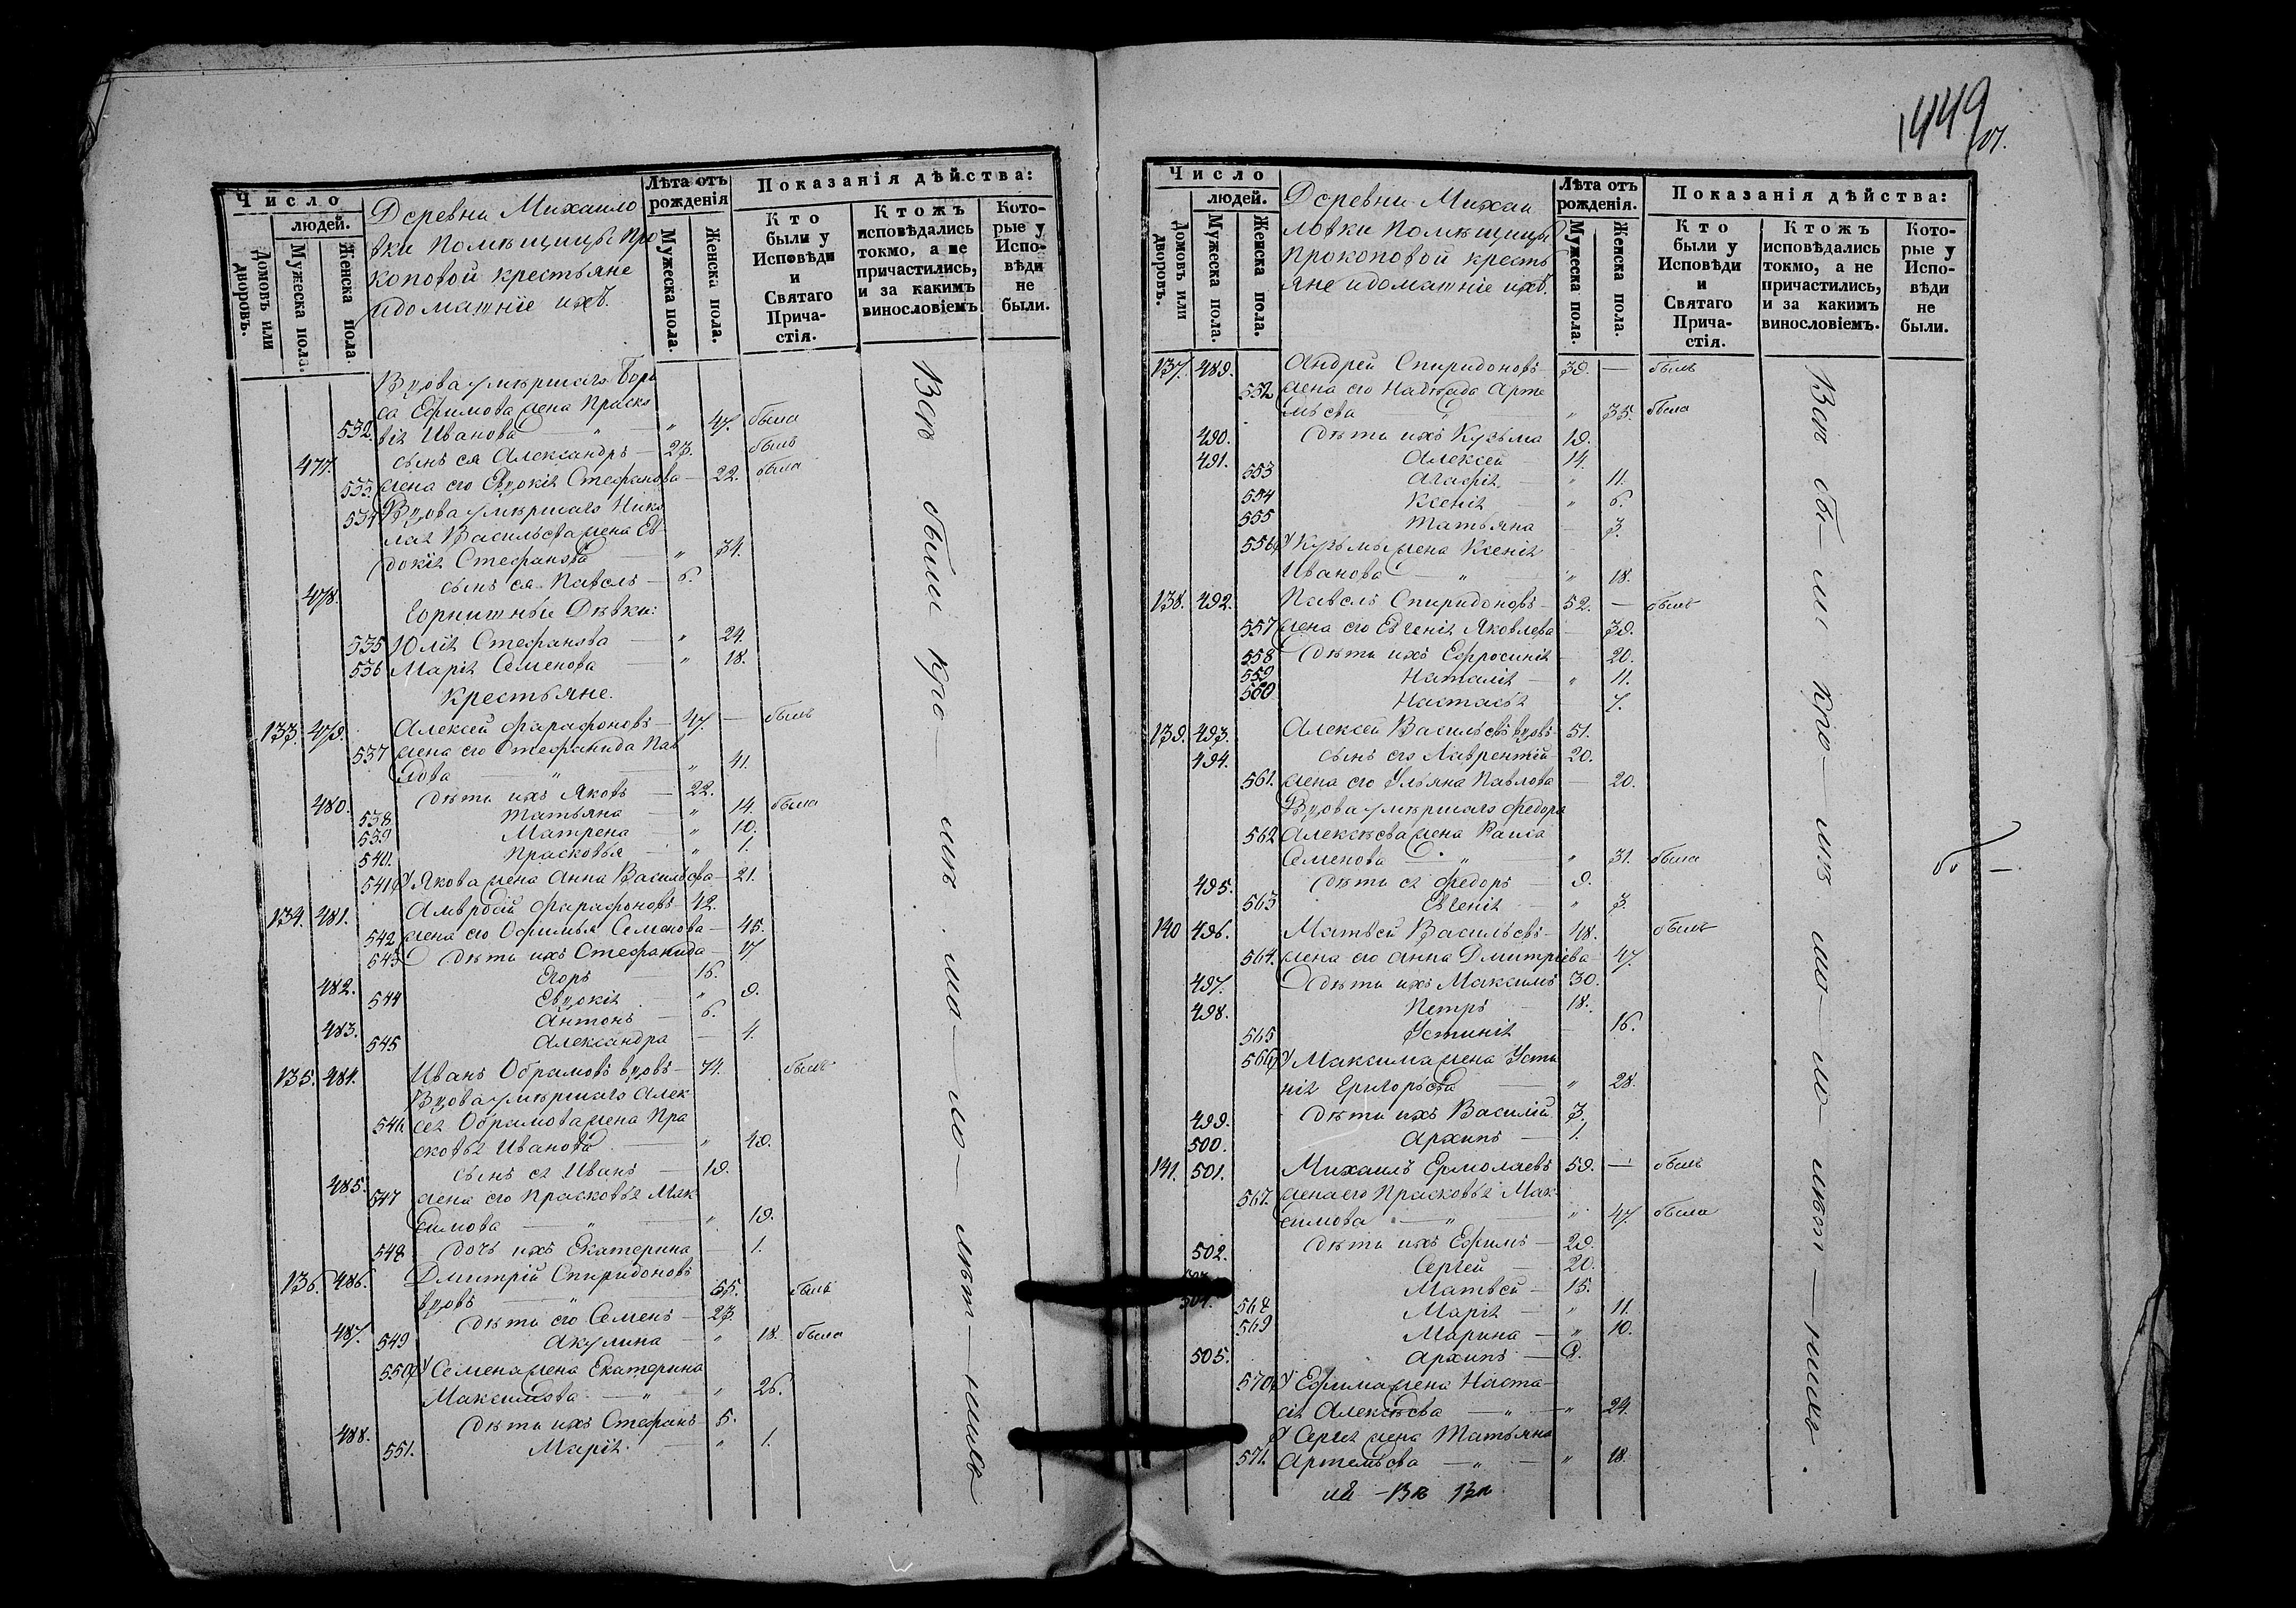 1449 об.
Число
людей.
Домовъ или дворовъ.
Мужеска пола.
Женска пола.
Деревни Михаило
вки Помѣщицы Про
коповой крестьяне
и домашніе ихъ.
Лѣта отъ рожденія
Мужеска пола.
Женска пола.
Показанія дѣйства:
Кто были у Исповѣди и Святаго Прича-стія.
Ктожъ исповѣдались токмо, а не причастились, и за какимъ винословіемъ
Кото-рые у Испо-вѣди не были.
Вдова умершаго Бори
са Ефимова жена Праско
532. вія Иванова — " — " 47. была
477. сынъ ея Александръ — 23. былъ
533. жена его Евдокія Стефанова — 22. была
534 Вдова умершаго Нико
лая Васильева жена Ев
докія Стефанова — " 34.
478. сынъ ея Павелъ — 6.
Горнишныи Дѣвки:
535 Юлія Стефанова — " 24.
536 Марія Семенова — " 18.
Крестьяне.
133. 479. Алексей Фарафоновъ — 47. — былъ
537 жена его Стефанида Пав
лова — " — " 41.
480. дѣти ихъ Яковъ — 22.
538 Татьяна — " 14. была
539 Матрена — " 10.
540. Прасковья — " 1.
541 У Якова жена Анна Васильева — 21.
134. 481. Амвросій Фарафоновъ — 42.
542 жена его Офимья Семенова — 45.
543 дѣти ихъ Стефанида — 17
482. Егоръ 16.
544 Евдокія — " 9.
483. Антонъ — 6.
545 Александра — 4.
135. 484. Иванъ Обрамовъ вдовъ — 74. былъ
Вдова умершаго Алек
546. сея Обрамова жена Пра
сковья Иванова — " 49.
485. сынъ ея Иванъ — 19.
547 жена его Прасковья Мак
симова — " — " 19.
548 дочь ихъ Екатерина — 1.
136. 486. Дмитрій Спиридоновъ
вдовъ — " — 65. былъ
487. дѣти его Семенъ — 23.
549 Акулина — " 18. была
550 У Семена жена Екатерина
Максимова — " — " 26.
488. дѣти ихъ Стефанъ — 5.
551. Марія. — " 1.
Всѣ были кро
Число
людей.
Домовъ или дворовъ.
Мужеска пола.
Женска пола.
Деревни Михаи
ловки Помѣщицы
Прокоповой кресть
яне и домашніе ихъ.
Лѣта отъ рожденія.
Мужеска пола.
Женска пола.
Показанія дѣйства:
Кто были у Исповѣди и Святаго Прича-стія.
Ктожъ исповѣдались токмо, а не причастились, и за какимъ винословіемъ.
Кото-рые у Испо-вѣди не были.
137. 489. Андрей Спиридоновъ — 39. — былъ
552 жена его Надежда Арте
мьева — " 35. была
490. дѣти ихъ Кузьма 19.
491. Алексей — 14.
553 Агафія — " 11.
554 Ксенія — " 6.
555 Татьяна — 3.
556 У Кузьмы жена Ксенія
Иванова — " — " 18.
138. 492. Павелъ Спиридоновъ — 52. — былъ
557 жена его Евгенія Яковлева — 39.
558 дѣти ихъ Ефросинія — 20.
559 Наталія — " 11.
560 Настасья — 7.
139. 493. Алексей Васильевъ вдовъ — 51.
494. сынъ его Лаврентій — 20.
561. жена его Ульяна Павлова — 20.
Вдова умершаго Федора
562 Алексѣева жена Раиса
Семенова — " — " 31. была
495. дѣти ея Федоръ — 9.
563 Евгенія — " 3.
140 496. Матвей Васильевъ — 48. былъ
564. жена его Анна Дмитріева — 47.
497. дѣти ихъ Максимъ 30.
498. Петръ — 18.
565 Устинія — 16.
566 У Максима жена Усти
нія Григорьева — " 28.
499. дѣти ихъ Василій 3.
500. Архипъ — 1.
141. 501. Михаилъ Ермолаевъ 59. — былъ
567. жена его Прасковья Мак
симова — " — " 47. была
502. дѣти ихъ Ефимъ — 29.
Сергей — 20.
504. Матвей — 15.
568 Марія — " 11.
569 Марина — " 10.
505. Архипъ — 8.
570 У Ефима жена Наста
сія Алексѣева — " — " 24.
У Сергея жена Татьяна
571. Артемьева — " — " 18.